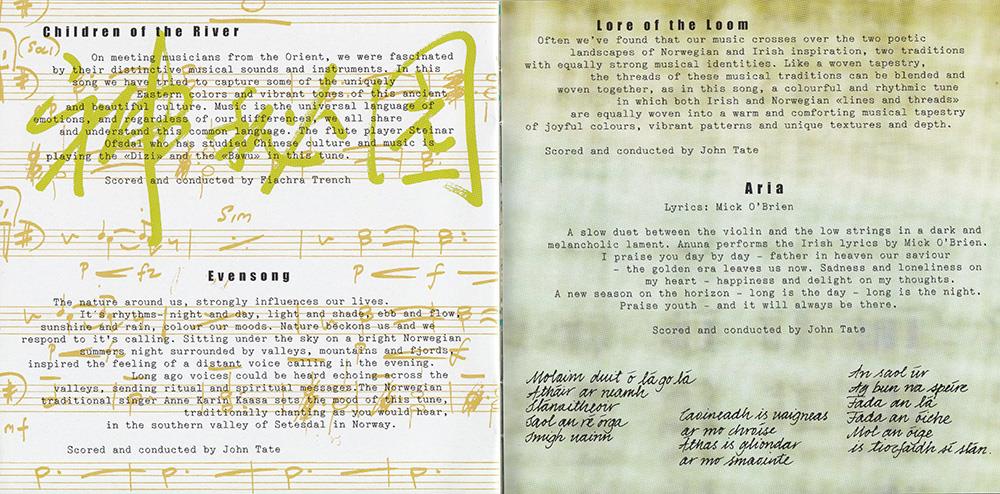 Children of the River
On meeting musicians from the Orient, we were fascinated
by their distinctive musical sounds and instruments. In this
song we have tried to capture some of the uniquely
Eastern colors and vibrant tones of this ancient
and beautiful culture. Music is the universal language of
emotions, and regardless of our differences, we all share
and understand this common language. The flute player Steinar
Ofsdal who has studied Chinese culture and music is
playing the «Dizi» and the «Bawu» in this tune.
Scored and conducted by Fiachra Trench
(Soli)
Sim
p f2
p f
Evensong
The nature around us, strongly influences our lives.
It´s rhythms- night and day, light and shade, ebb and flow,
sunshine and rain, colour our moods. Nature beckons us and we
respond to it's calling. Sitting under the sky on a bright Norwegian
summers night surrounded by valleys, mountains and fjords
inspired the feeling of a distant voice calling in the evening.
Long ago voices could be heard echoing across the
valleys, sending ritual and spiritual messages.The Norwegian
traditional singer Anne Karin Kaasa sets the mood of this tune,
traditionally chanting as you would hear,
in the southern valley of Setesdal in Norway.
mf
Scored and conducted by John Tate
Lore of the Loom
Often we've found that our music crosses over the two poetic
landscapes of Norwegian and Irish inspiration, two traditions
with equally strong musical identities. Like a woven tapestry,
the threads of these musical traditions can be blended and
woven together, as in this song, a colourful and rhythmic tune
in which both Irish and Norwegian «lines and threads»
are equally woven into a warm and comforting musical tapestry
of joyful colours, vibrant patterns and unique textures and depth.
Scored and conducted by John Tate
Aria
Lyrics: Mick O'Brien
A slow duet between the violin and the low strings in a dark and
melancholic lament. Anuna performs the Irish lyrics by Mick O'Brien.
I praise you day by day - father in heaven our saviour
- the golden era leaves us now. Sadness and loneliness on
my heart - happiness and delight on my thoughts.
A new season on the horizon - long is the day - long is the night.
Praise youth - and it will always be there.
Scored and conducted by John Tate
Molaim duit ó lá go lá
Athair ar neamh
Slánaitheoir
Saol an ré órga
Imigh uainn
Caoineadh is uaigneas
ar mo chroise
Áthas is gliondar
ar mo smaointe
An saol úr
Ag bun na spéire
Fada an lá
Fada an óiche
Mol an óige
is tiocfaidh sí slán.